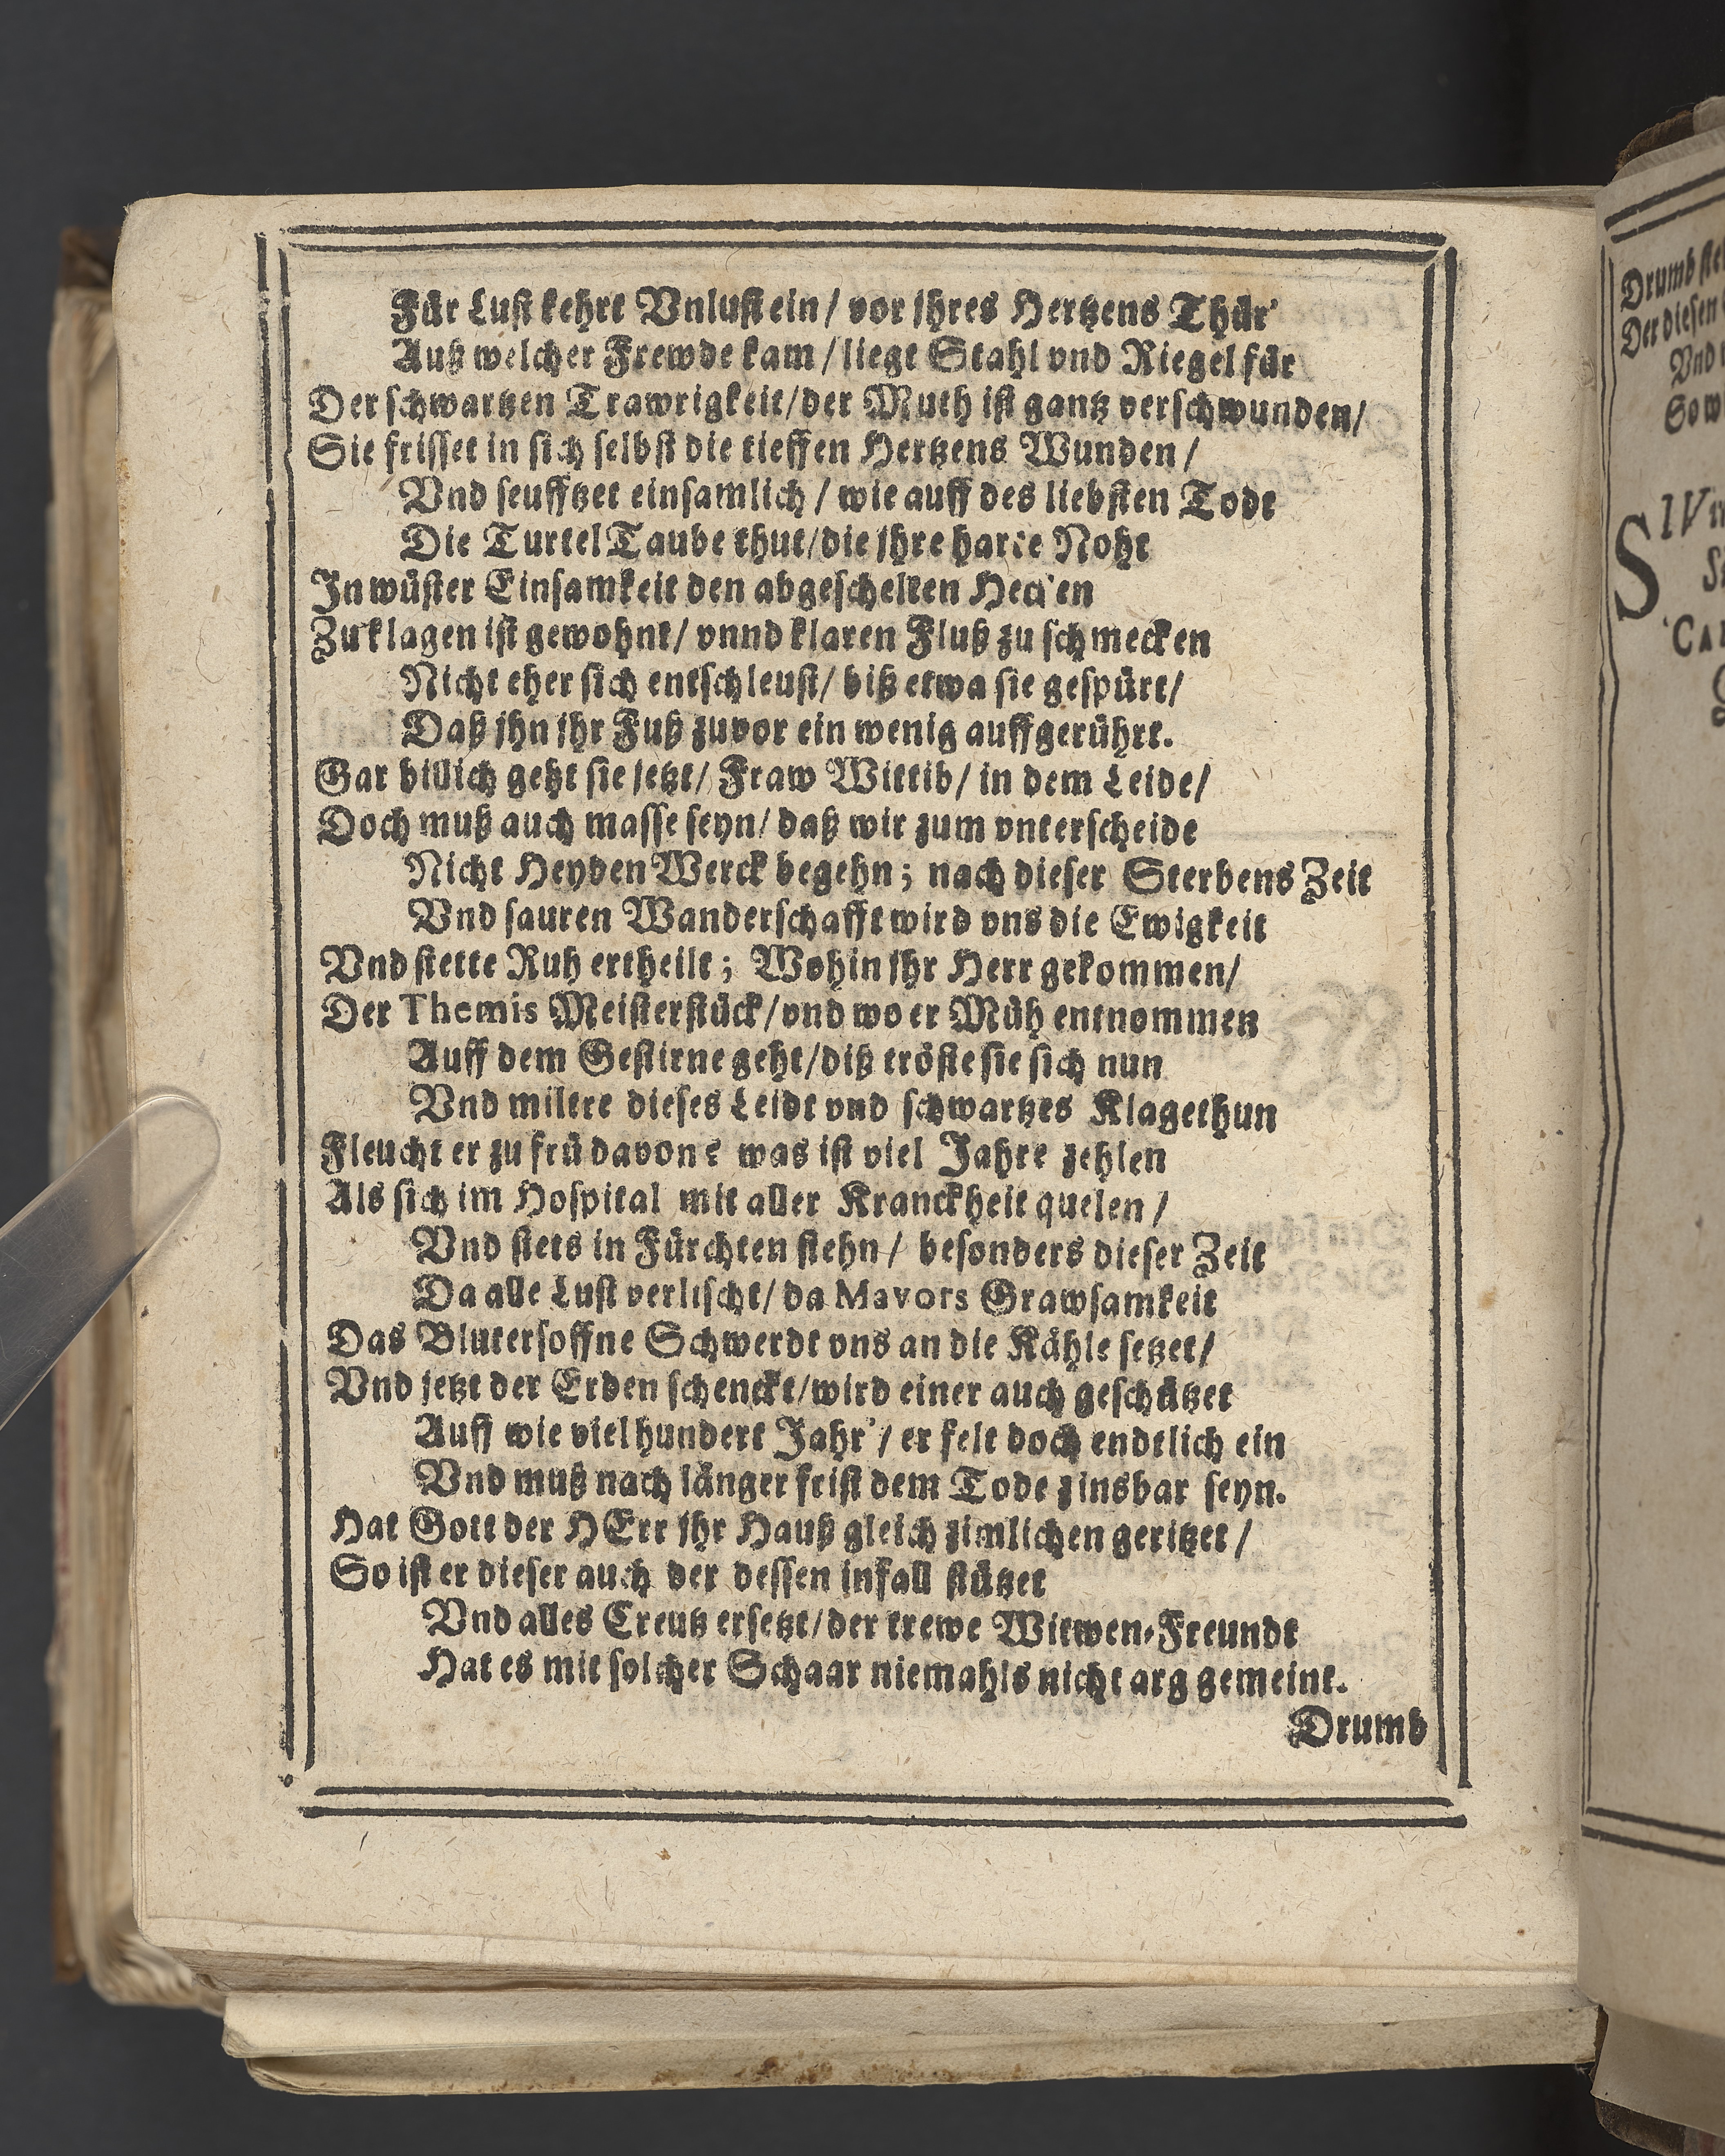 Für Lust kehrt Vnlust ein / vor jhres Hertzens Thür'
Auß welcher Frewde kam / liegt Stahl vnd Riegel für
Der schwartzen Trawrigkeit/der Muth ist gantz verschwunden/
Sie frisset in sich selbst die tieffen Hertzens Wunden /
Vnd seufftzet einsamlich / wie auff des liebsten Todt
Die TurtelTaube thut/die jhre harte Noht
In wüster Einsamkeit den abgeschelten Hecken
Zu klagen ist gewohnt/ vnnd klaren Fluß zu schmecken
Nicht eher sich entschleust/ biß etwa sie gespürt/
Daß jhn jhr Fuß zuvor ein wenig auffgerührt.
Gar billich geht sie jetzt/ Fraw Wittib/ in dem Leide/
Doch muß auch masse seyn/ daß wir zum vnterscheide
Nicht HeydenWerck begehn; nach dieser Sterbens Zeit
Vnd sauren Wanderschafft wird vns die Ewigkeit
Vnd stette Ruh ertheilt; Wohin jhr Herr gekommen/
Der Themis Meisterstück/vnd wo er Müh entnommen
Auff dem Gestirne geht/diß tröste sie sich nun
Vnd miltere dieses Leidt vnd schwartzes Klagethun
Fleucht er zu frü davon? was ist viel Jahre zehlen
Als sich im Hospital mit aller Kranckheit quelen /
Vnd stets in Fürchten stehn / besonders dieser Zeit
Da alle Lust verlischt/ da Mavors Grawsamkeit
Das Blutersoffne Schwerdt vns an die Kähle setzet/
Vnd jetzt der Erden schenckt/wird einer auch geschätzet
Auff wie viel hundert Jahr' / er felt doch endtlich ein
Vnd muß nach länger frist dem Tode zinsbar seyn.
Hat Gott der HErr jhr Hauß gleich zimlichen geritzet /
So ist er dieser auch der dessen infall stützet
Vnd alles Creutz ersetzt/der trewe Witwen-Freundt
Hat es mit solcher Schaar niemahls nicht arg gemeint.
Drumb
Drumb
Der diesen
Vnd
So w
SIV
CA